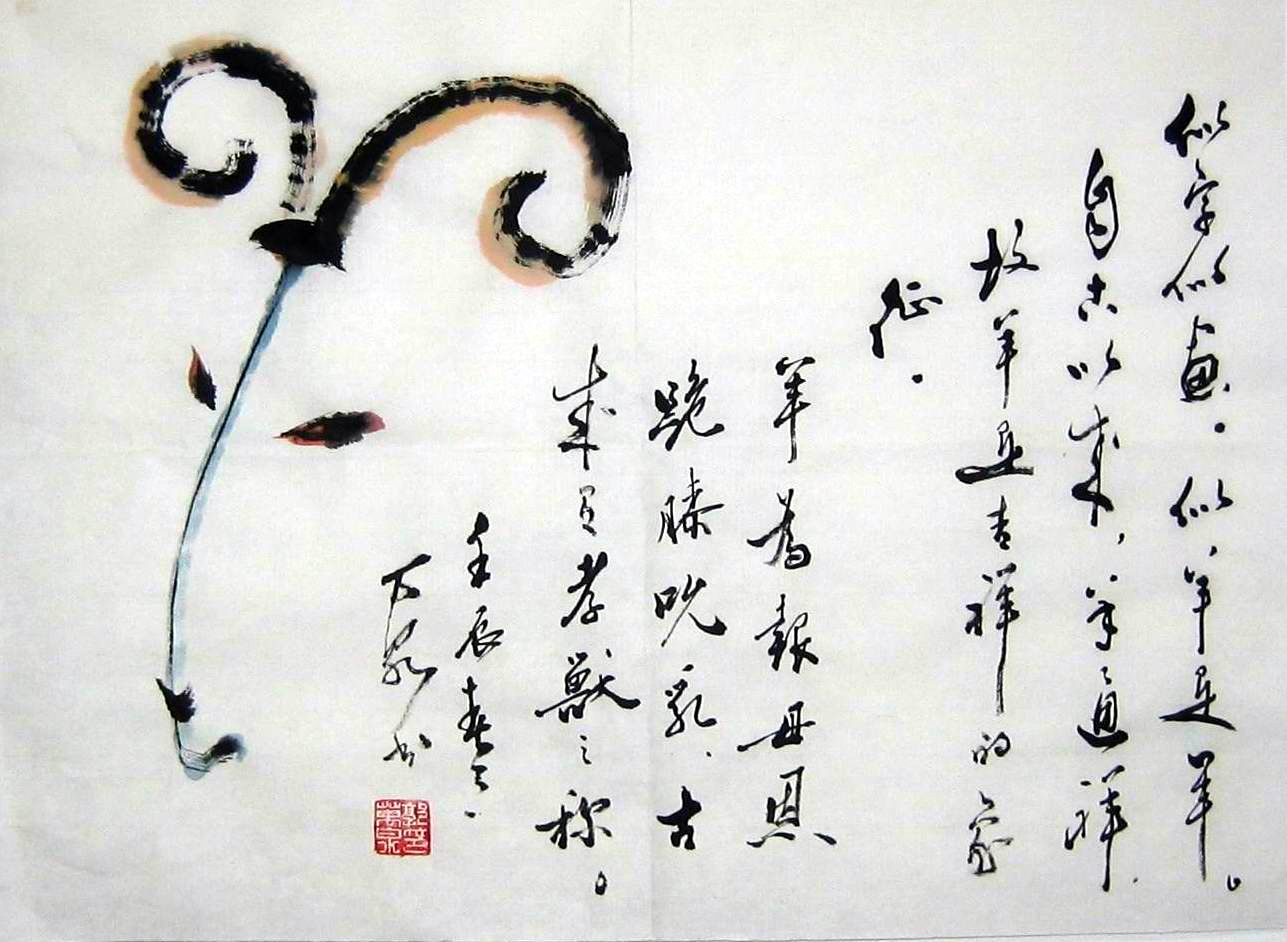 似字似画。似羊是羊。
自古以来，羊通祥，
故羊是吉祥的象
征。
羊為報母恩
跪膝吮乳，古
来有孝獸之称。
壬辰春
万泉书